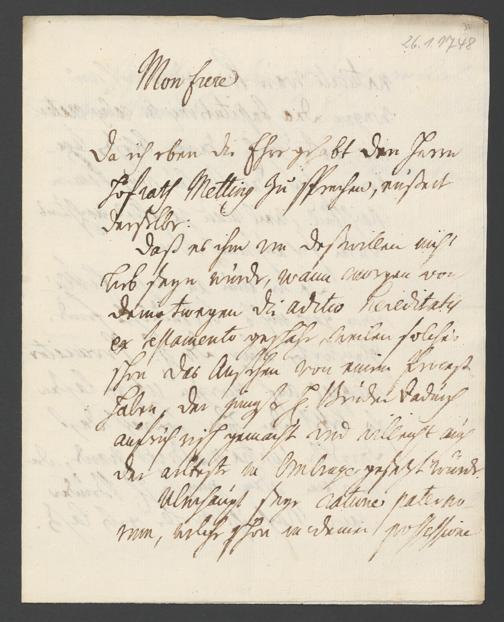 26.1.1748
Mon frere
Da ich eben die Ehre gehabt den Herrn
Hofrath Metting zu sprechen, äußert
derselbe:
Daß es ihm um deswillen nicht
lieb seyn würde, wann morgen von
deinetwegen die aditio hereditatis
ex testamento geschähe, weilen solches
schon das Ansehen von einem Process
haben, der jüngste H. Bruder dadurch
aufsichtig gemacht und villeicht auch
der älteste in Ombrage gesetzt würde.
Überhaupt seye ratione paterno-
rum, welche schon in deiner possession